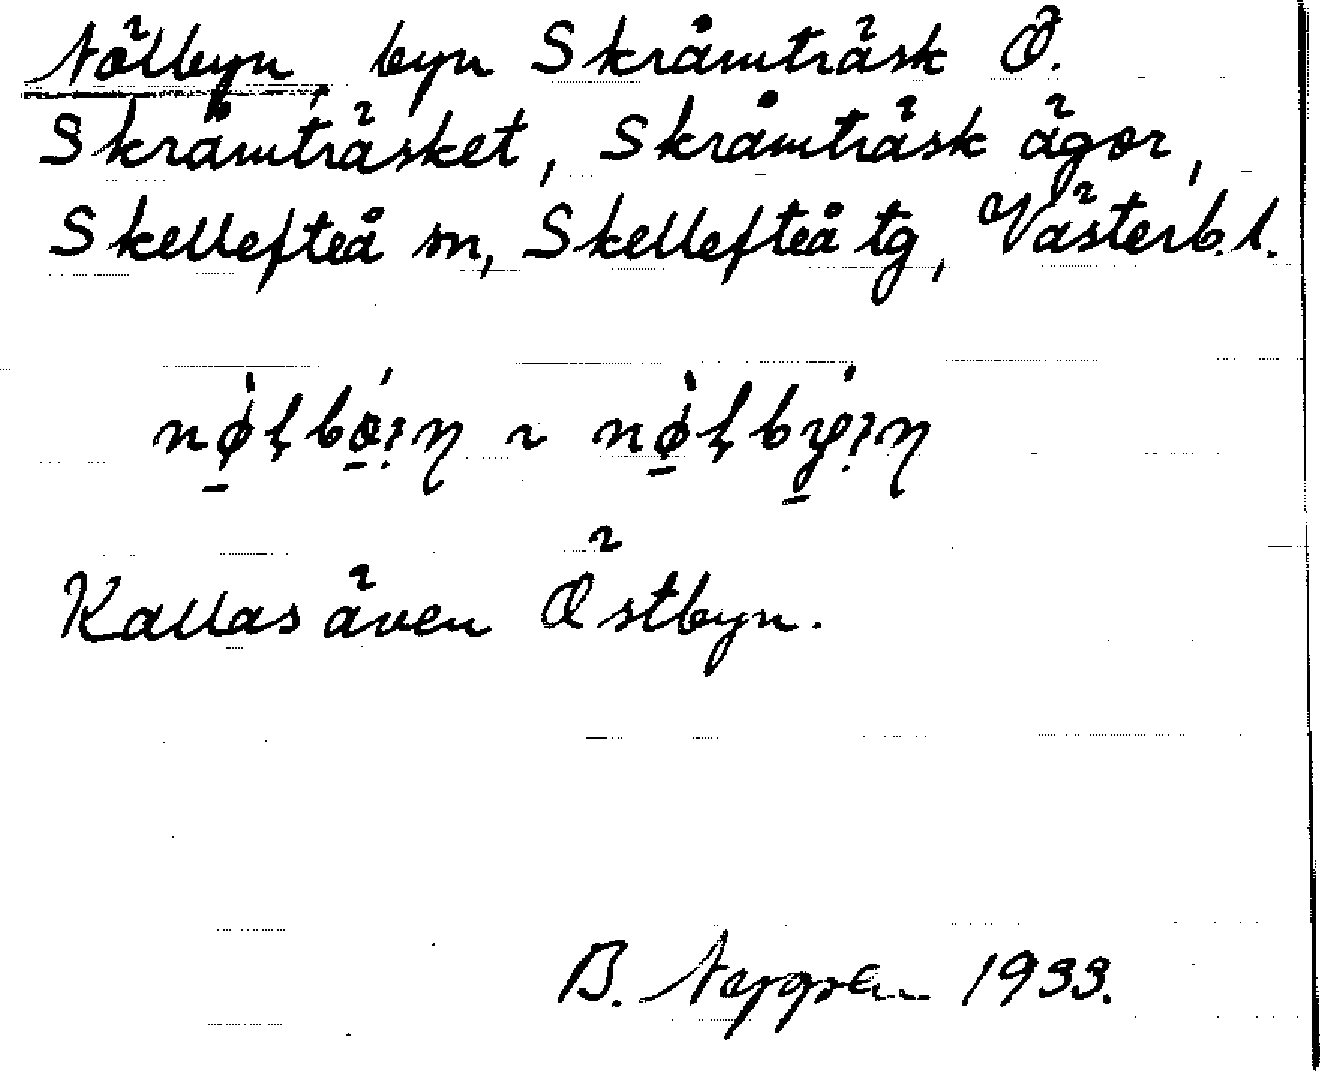 Nölbyn, byn Skråmträsk Ö.
Skråmträsket, Skråmträsk ägor,
Skellefteå sn, Skellefteå tg, Västerb. l.
Kallas även Östbyn.
B. 1933.